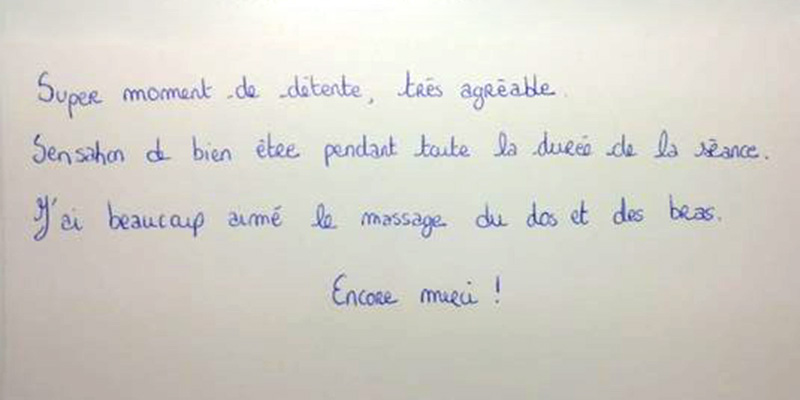 Super moment de détente, très agréable.
Sensation de bien être pendant toute la durée de la séance.
J'ai beaucoup aimé le massage du dos et des bras.
Encore merci !